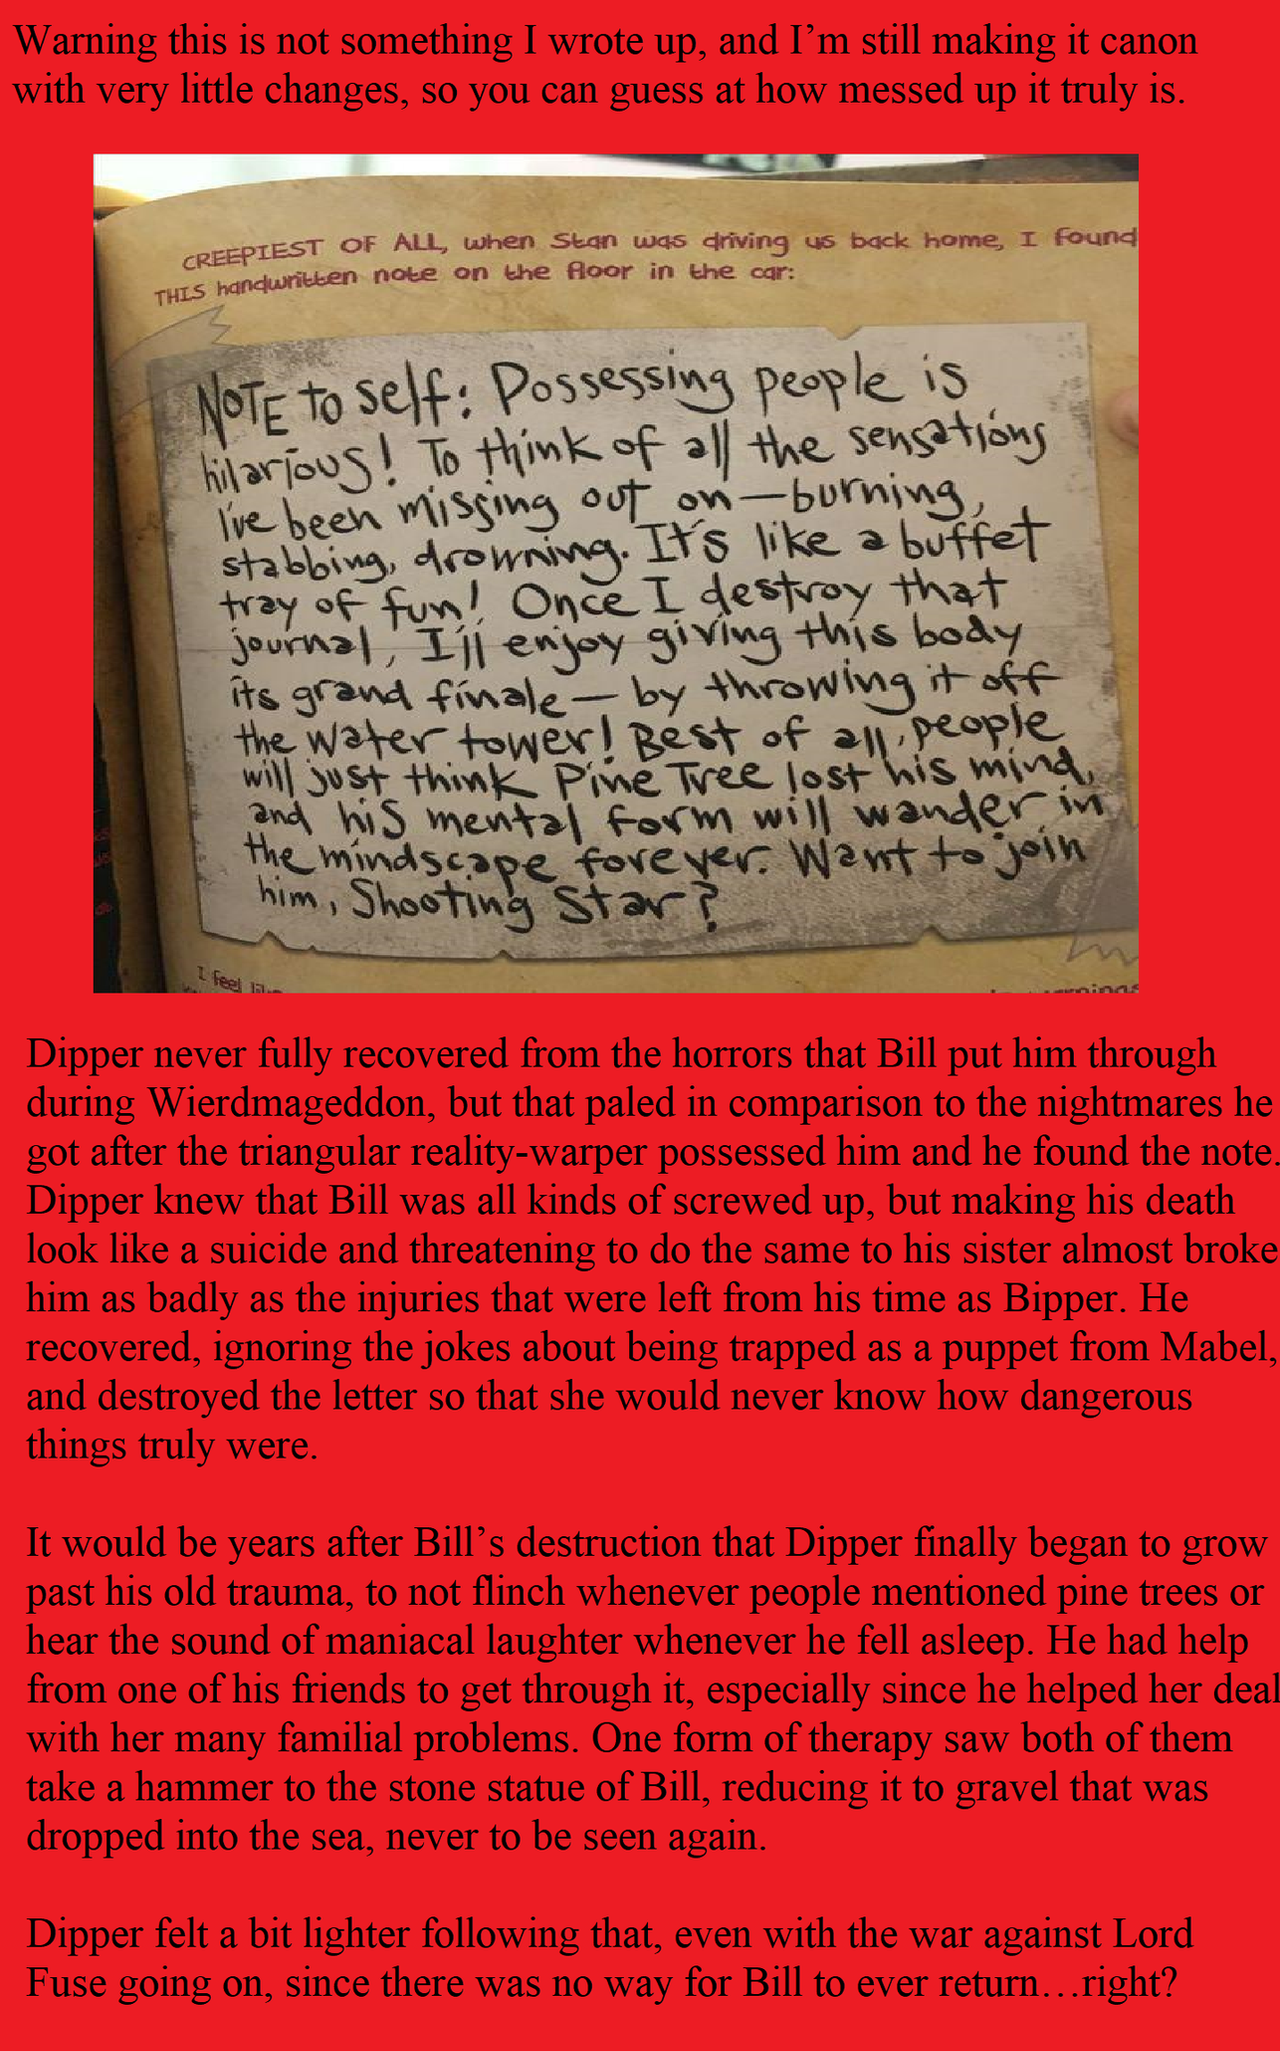 Warning this is not something I wrote up, and I'm still making it canon
with very little changes, so you can guess at how messed up it truly is.
CREEPIEST OF ALL, when Stan was driving us back home, I found
THIS handwritten note on the floor in the car:
NOTE to self: Possessing people is
hilarious! To think of all the sensations
I've been missing out on—burning,
stabbing, drowning. It's like a buffet
tray of fun! Once I destroy that
journal, I'll enjoy giving this body
its grand finale—by throwing it off
the water tower! Best of all, people
will just think Pine Tree lost his mind,
and his mental form will wander in
the mindscape forever. Want to join
him, Shooting Star?
I feel
Dipper never fully recovered from the horrors that Bill put him through
during Wierdmageddon, but that paled in comparison to the nightmares he
got after the triangular reality-warper possessed him and he found the note.
Dipper knew that Bill was all kinds of screwed up, but making his death
look like a suicide and threatening to do the same to his sister almost broke
him as badly as the injuries that were left from his time as Bipper. He
recovered, ignoring the jokes about being trapped as a puppet from Mabel,
and destroyed the letter so that she would never know how dangerous
things truly were.
It would be years after Bill's destruction that Dipper finally began to grow
past his old trauma, to not flinch whenever people mentioned pine trees or
hear the sound of maniacal laughter whenever he fell asleep. He had help
from one of his friends to get through it, especially since he helped her deal
with her many familial problems. One form of therapy saw both of them
take a hammer to the stone statue of Bill, reducing it to gravel that was
dropped into the sea, never to be seen again.
Dipper felt a bit lighter following that, even with the war against Lord
Fuse going on, since there was no way for Bill to ever return…right?